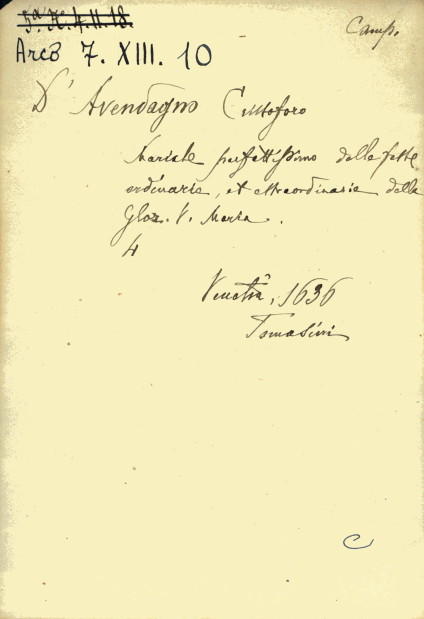 5ª.K.4.11.18.
Camp.
ArcB 7. XIII. 10
D' Avendagno Cristoforo
Mariale perfettissimo delle feste
ordinarie, et estraordinarie della
Glor. V. Maria.
4
Venetia, 1636
Tomasini
C